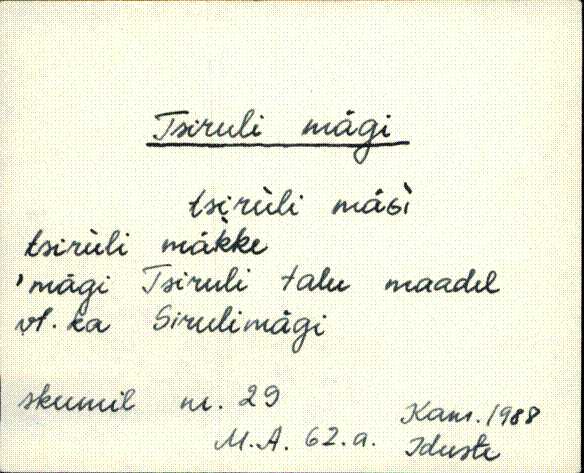 Tsiruli mägi
tsirùli mäɢì
tsirùli mäkke
'mägi Tsiruli talu maadel
vt. ka Sirulimägi
skeemil nr. 29
Kam. 1988
M.A. 62.a. Iduste